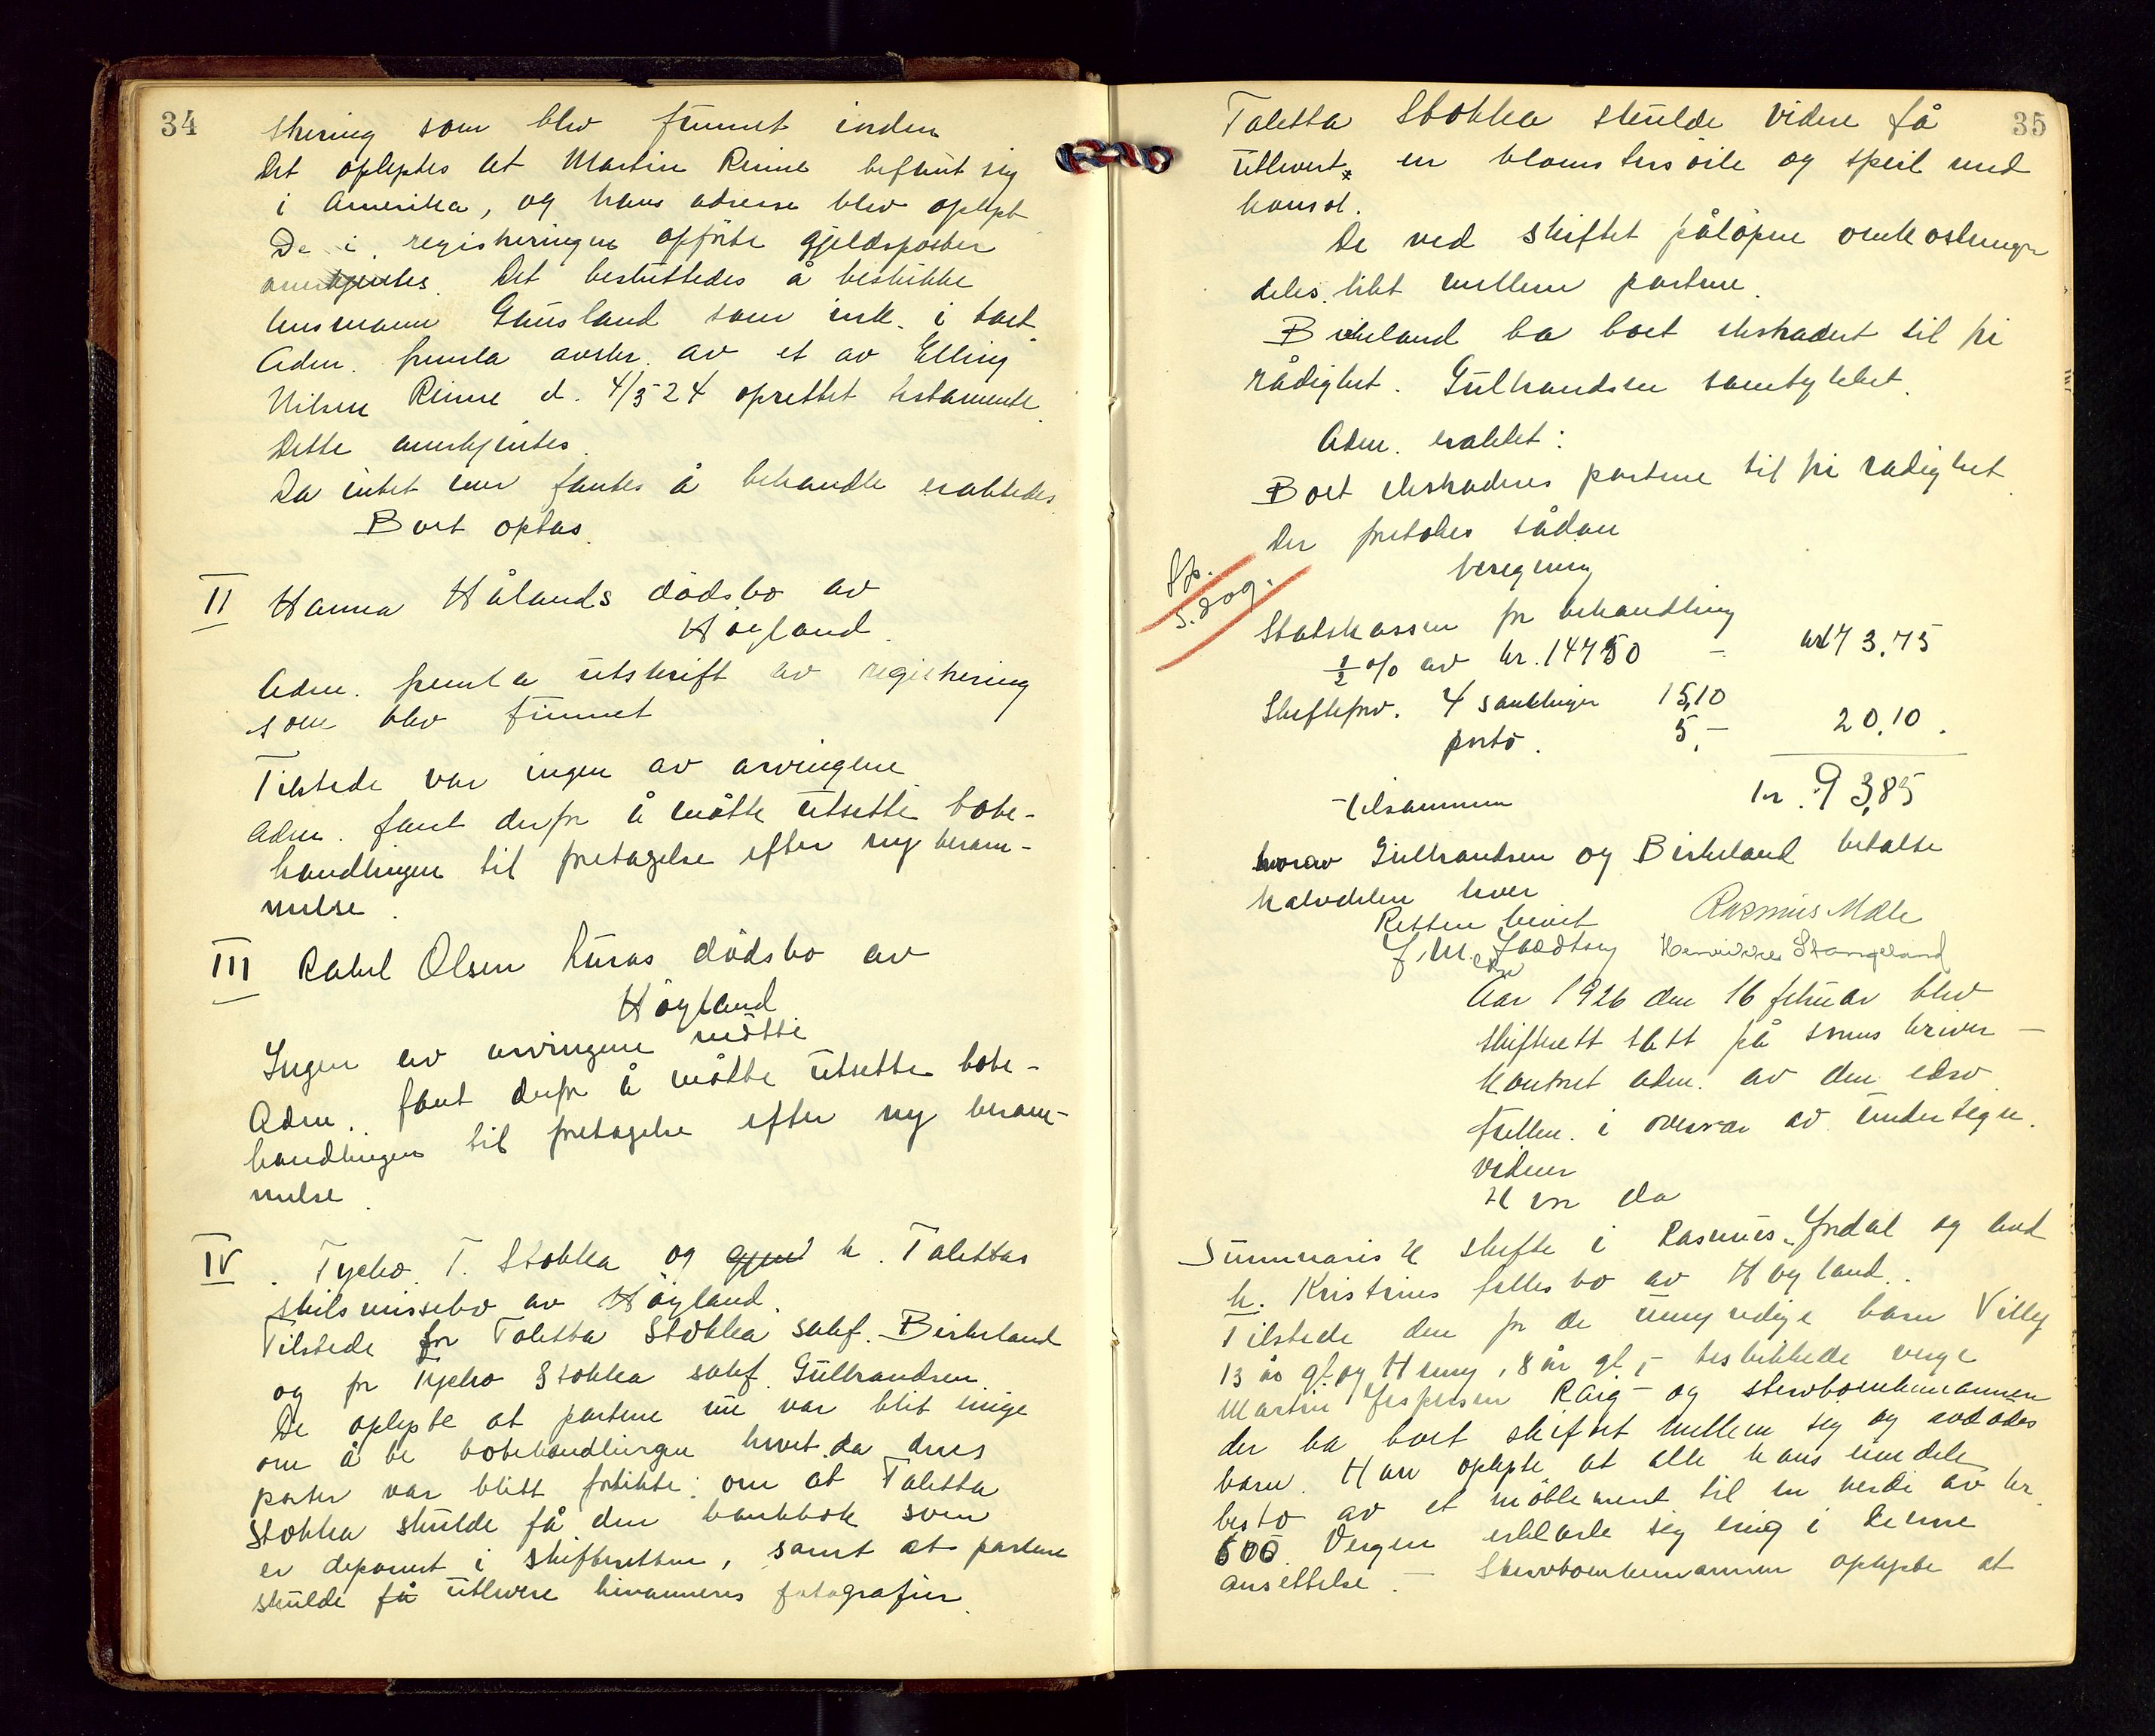 34
string som blev funnet inden
Det oplystes at Martin Rinne befant sig
i Amerika, og hans adresse blev oplyst
De i registreringen opførte gjeldsposter
anerkjentes. Det besluttedes å beskikke
lensmann Gausland som ink. i boet
Adm. fremla avskr. av et av Elling
Nilsen Rinne d. 4/5 24 oprettet testamente.
Dette anerkjentes.
Da intet mer fantes å behandle eraktedes
Boet optas.
II Hanna Hålands dødsbo av
Høyland.
Adm. fremla utskrift av registrering
som blev funnet
Tilstede var ingen av arvingene
Adm. fant derfor å måtte utsette bobe-
handlingen til foretagelse efter ny beram-
melse.
III Rakel Olsen Luras dødsbo av
Høyland
Ingen av arvingene møtte
Adm. fant derfor å måtte utsette bobe-
handlingen til foretagelse efter ny beram-
melse.
IV. Tycho T. Stokka og h. Talettas
skilsmissebo av Høyland.
Tilstede for Taletta Stokka sakf. Birkeland
og for Tycho Stokka sakf. Gulbrandsen.
De oplyste at partene nu var blit enige
om å be bobehandlingen hevet da deres
parter var blitt forlikte om at Taletta
Stokka skulde få den bankbok som
er deponert i skifteretten, samt at partene
skulde få utlevere hinannens fotografier.
35
Taletta Stokka skulde videre få
utlevert en blomstersøile og speil med
konsol.
De ved skiftet påløpne omkostninger
deles likt mellem partene.
Birkeland ba boet ekstradert til fri
rådighet. Gulbrandsen samtykket.
Adm. eraktet:
Boet ekstraderes partene til fri rådighet.
Der foretokes sådan
beregning
S. dag.
Statskassen for behandling
1/2 % av kr. 14750 - kr 73,75
Skifteforv. 4 samlinger 15,10
porto. 5,- 20,10.
tilsammen kr. 93,85
hvorav Gulbrandsen og Birkeland betalte
halvdelen hver
Retten hevet
Rasmus Mæle
Henrikke Stangeland
Aar 1926 den 16 februar blev
skifterett satt på sorenskriver-
kontoret adm. av den edsv.
fullm. i overvær av undertegn.
vidner
Hvor da
Summarisk skifte i Rasmus Yndal og avd
h. Kristines fellesbo av Høyland.
Tilstede den for de umyndige barn Villy
13 år gl og Henny, 8 år gl,- beskikkede verge
Martin Jespersen Raig- og sterbo enkemannen
der ba boet skiftet mellem sig og avdødes
barn. Han oplyste at alle hans eiendele
besto av et møblement til en verdi av kr.
600. Vergen erklærte sig enig i denne
ansettelse. - Sterbo enkemannen oplyste at